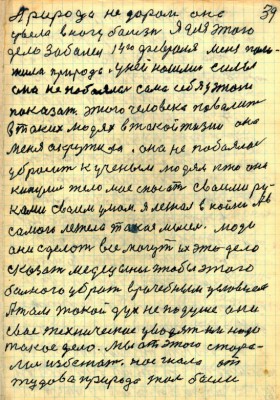 39
Природа не даром она
увела в ногу болезн Я для этого
дело забалел 14го февраля меня поло-
жила природа. у ней нашлис силы
она не побоялас сама себя у этом
показат. этого человека повалит
в таких людях в такой жизни она
меня окружила. она не побоялас
убрали к ученым людям, кто она
кинули тело мое спасат своими ру-
ками своим умом. я лежал в койки
самого летела такая мысел. люди
они сделот все могут их это дело
сказат медецыны чтобы этого
больного убрат врачебным условием
А там такой дух не по душе они
свае технические уводят им надо
такое дело. Мы от этого стара-
лис избежат. нас гнала от
туда ва природа там были